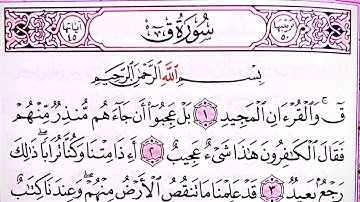 ترتيبها ٥٠ سُورَةُ قٓ آياتها ٤٥
بِسْمِ اللَّهِ الرَّحْمَٰنِ الرَّحِيمِ
قٓ ۚ وَالْقُرْءَانِ الْمَجِيدِ ١ بَلْ عَجِبُوٓا۟ أَن جَآءَهُم مُّنذِرٌ مِّنْهُمْ
فَقَالَ الْكَٰفِرُونَ هَٰذَا شَىْءٌ عَجِيبٌ ٢ أَءِذَا مِتْنَا وَكُنَّا تُرَابًا ۖ ذَٰلِكَ
رَجْعٌۢ بَعِيدٌ ٣ قَدْ عَلِمْنَا مَا تَنقُصُ الْأَرْضُ مِنْهُمْ ۖ وَعِندَنَا كِتَٰبٌ